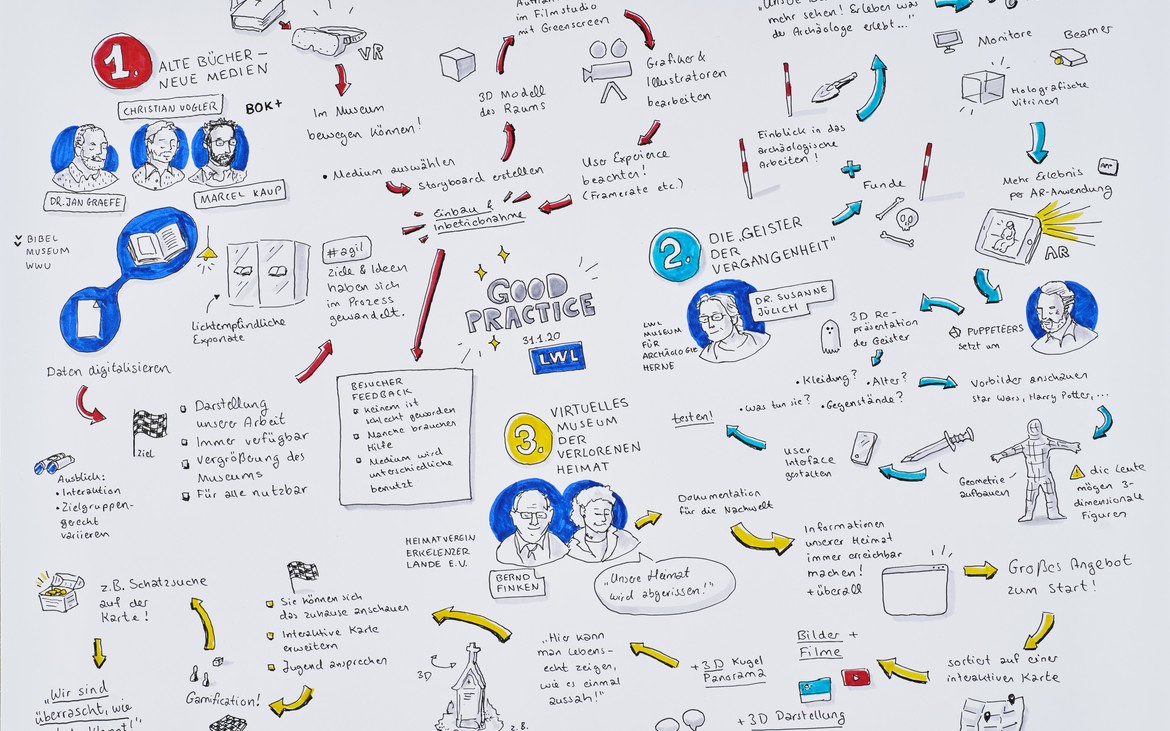 1.
ALTE BÜCHER –
NEUE MEDIEN
CHRISTIAN VOGLER
BOK+
DR. JAN GRAEFE
MARCEL KAUP
BIBEL
MUSEUM
WWU
VR
Im Museum
bewegen können!
• Medium auswählen
Storyboard erstellen
3D Modell
des Raums
im Filmstudio
mit Greenscreen
Grafiker &
Illustratoren
bearbeiten
User Experience
beachten!
(Framerate etc.)
Einbau &
Inbetriebnahme
#agil
Ziele & Ideen
haben sich
im Prozess
gewandelt.
Lichtempfindliche
Exponate
Daten digitalisieren
Ziel
Darstellung
unserer Arbeit
Immer verfügbar
Vergrößerung des
Museums
Für alle nutzbar
Ausblick:
• Interaktion
• Zielgruppen-
gerecht
variieren
BESUCHER
FEEDBACK
keinem ist
schlecht geworden
Manche brauchen
Hilfe
Medium wird
unterschiedliche
benutzt
GOOD
PRACTICE
31.1.20
LWL
2.
DIE „GEISTER
DER
VERGANGENHEIT"
DR. SUSANNE
JÜLICH
LWL
MUSEUM
FÜR
ARCHÄOLOGIE
HERNE
mehr sehen! Erleben was
der Archäologe erlebt..."
Einblick in das
archäologische
Arbeiten!
+
Funde
Monitore
Beamer
Holografische
Vitrinen
Mehr Erlebnis
per AR-Anwendung
APP
AR
PUPPETEERS
setzt um
3D Re-
präsentation
der Geister
• Kleidung?
• Alter?
• Was tun sie?
• Gegenstände?
Vorbilder anschauen
Star Wars, Harry Potter, ...
Geometrie
aufbauen
! die Leute
mögen 3-
dimensionale
Figuren
User
Inteface
gestalten
testen!
3.
VIRTUELLES
MUSEUM
DER
VERLORENEN
HEIMAT
HEIMATVEREIN
ERKELENZER
LANDE E.V.
BERND
FINKEN
„Unsere Heimat
wird abgerissen!"
Dokumentation
für die Nachwelt
Informationen
unserer Heimat
immer erreichbar
machen!
+ überall
Großes Angebot
zum Start!
sortiert auf einer
interaktiven Karte
Bilder +
Filme
+ 3D Darstellung
+ 3D Kugel
Panorama
„Hier kann
man lebens-
echt zeigen,
wie es einmal
aussah!"
3D
z.B.
Sie können sich
das Zuhause anschauen
Interaktive Karte
erweitern
Jugend ansprechen
Gamification!
z.B. Schatzsuche
auf der
Karte!
„Wir sind
überrascht, wie